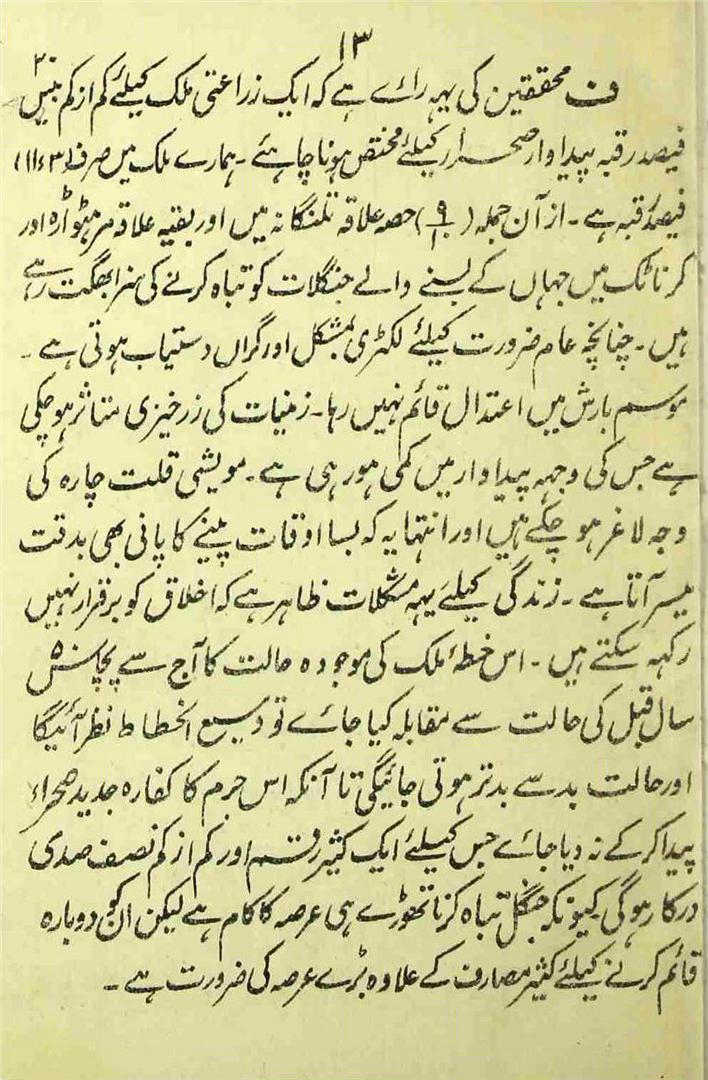 ۱۳
ف محققین کی یہہ رائے ہے کہ ایک زراعتی ملک کیلئے کم از کم بیس ۲۰
فیصد رقبہ پیداوار صحرا کیلئے مختص ہونا چاہئے ۔ ہمارے ملک میں صرف (۱۱ء۳)
فیصد رقبہ ہے ۔ از آن جملہ (۹/۱۰) حصہ علاقہ تلنگانہ میں اور بقیہ علاقہ مرہٹواڑہ اور
کرناٹک میں جہاں کے بسنے والے جنگلات کو تباہ کرنے کی سزا بھگت رہے
ہیں ۔ چنانچہ عام ضرورت کیلئے لکڑی بمشکل اور گراں دستیاب ہوتی ہے ۔
موسم بارش میں اعتدال قائم نہیں رہا ۔ زمینات کی زرخیزی متاثر ہو چکی
ہے جس کی وجہہ پیداوار میں کمی ہو رہی ہے ۔ مویشی قلت چارہ کی
وجہ لاغر ہو چکے ہیں اور انتہا یہ کہ بسا اوقات پینے کا پانی بھی بدقت
میسر آتا ہے ۔ زندگی کیلئے یہہ مشکلات ظاہر ہے کہ اخلاق کو برقرار نہیں
رکہہ سکتے ہیں ۔ اس خطۂ ملک کی موجودہ حالت کا آج سے پچاس ۵۰
سال قبل کی حالت سے مقابلہ کیا جائے تو وسیع انحطاط نظر آئیگا
اور حالت بد سے بدتر ہوتی جائیگی تا آنکہ اس جرم کا کفارہ جدید صحراء
پیدا کر کے نہ دیا جائے جس کیلئے ایک کثیر رقم اور کم از کم نصف صدی
درکار ہوگی کیونکہ جنگل تباہ کرنا تھوڑے ہی عرصہ کا کام ہے لیکن ان کو دوبارہ
قائم کرنے کیلئے کثیر مصارف کے علاوہ بڑے عرصہ کی ضرورت ہے ۔